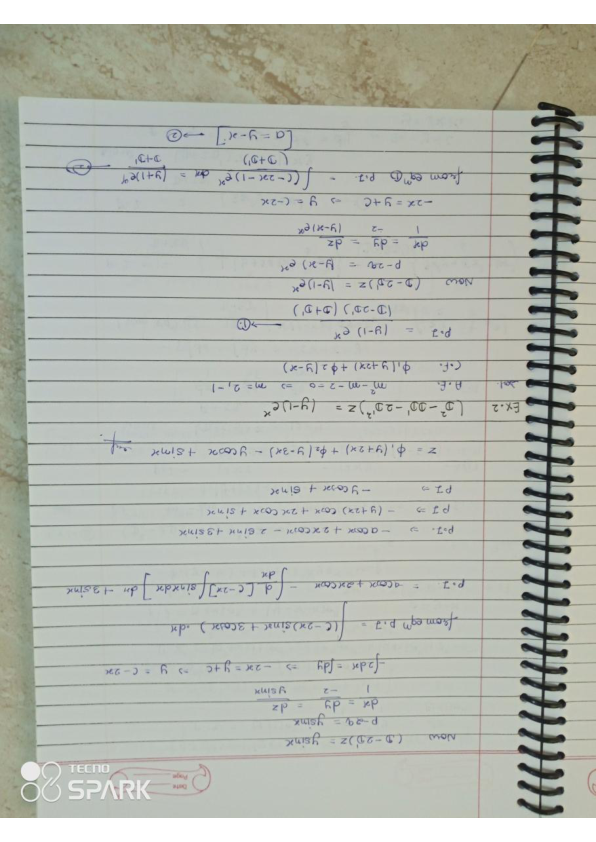 Date
Page
Now (D-2D')z = ysinx
p-2q = ysinx
dx/1 = dy/-2 = dz/ysinx
-∫2dx = ∫dy ⇒ -2x = y+c ⇒ y = c-2x
from eqⁿ P.I = ∫(c-2x)sinx + 3cosx) .dx
P.I = -acosx + 2xcosx - ∫[d/dx [c-2x]∫sinxdx] dx + 3sinx
P.I. ⇒ -acosx + 2xcosx - 2sinx + 3sinx
P.I ⇒ -(y+2x) cosx + 2xcosx + sinx
P.I ⇒ -ycosx + sinx
z = φ₁(y+2x) + φ₂(y-3x) - ycosx + sinx
Ex.2 (D²-DD'-2D'²)z = (y-1)eˣ
Sol. A.E. m²-m-2=0 ⇒ m=2,-1
C.F. φ₁(y+2x) + φ₂(y-x)
P.I = (y-1)eˣ / (D-2D')(D+D') → ①
Now (D-2D')z = (y-1)eˣ
p-2q = (y-x)eˣ
dx/1 = dy/-2 = dz/(y-x)eˣ
-2x = y+c ⇒ y = c-2x
from eqⁿ ① P.I. = ∫(c-2x-1)eˣ dx / (D+D') = (y+1)eˣ / D+D' → ②
[a = y-x] → ②
TECNO
SPARK